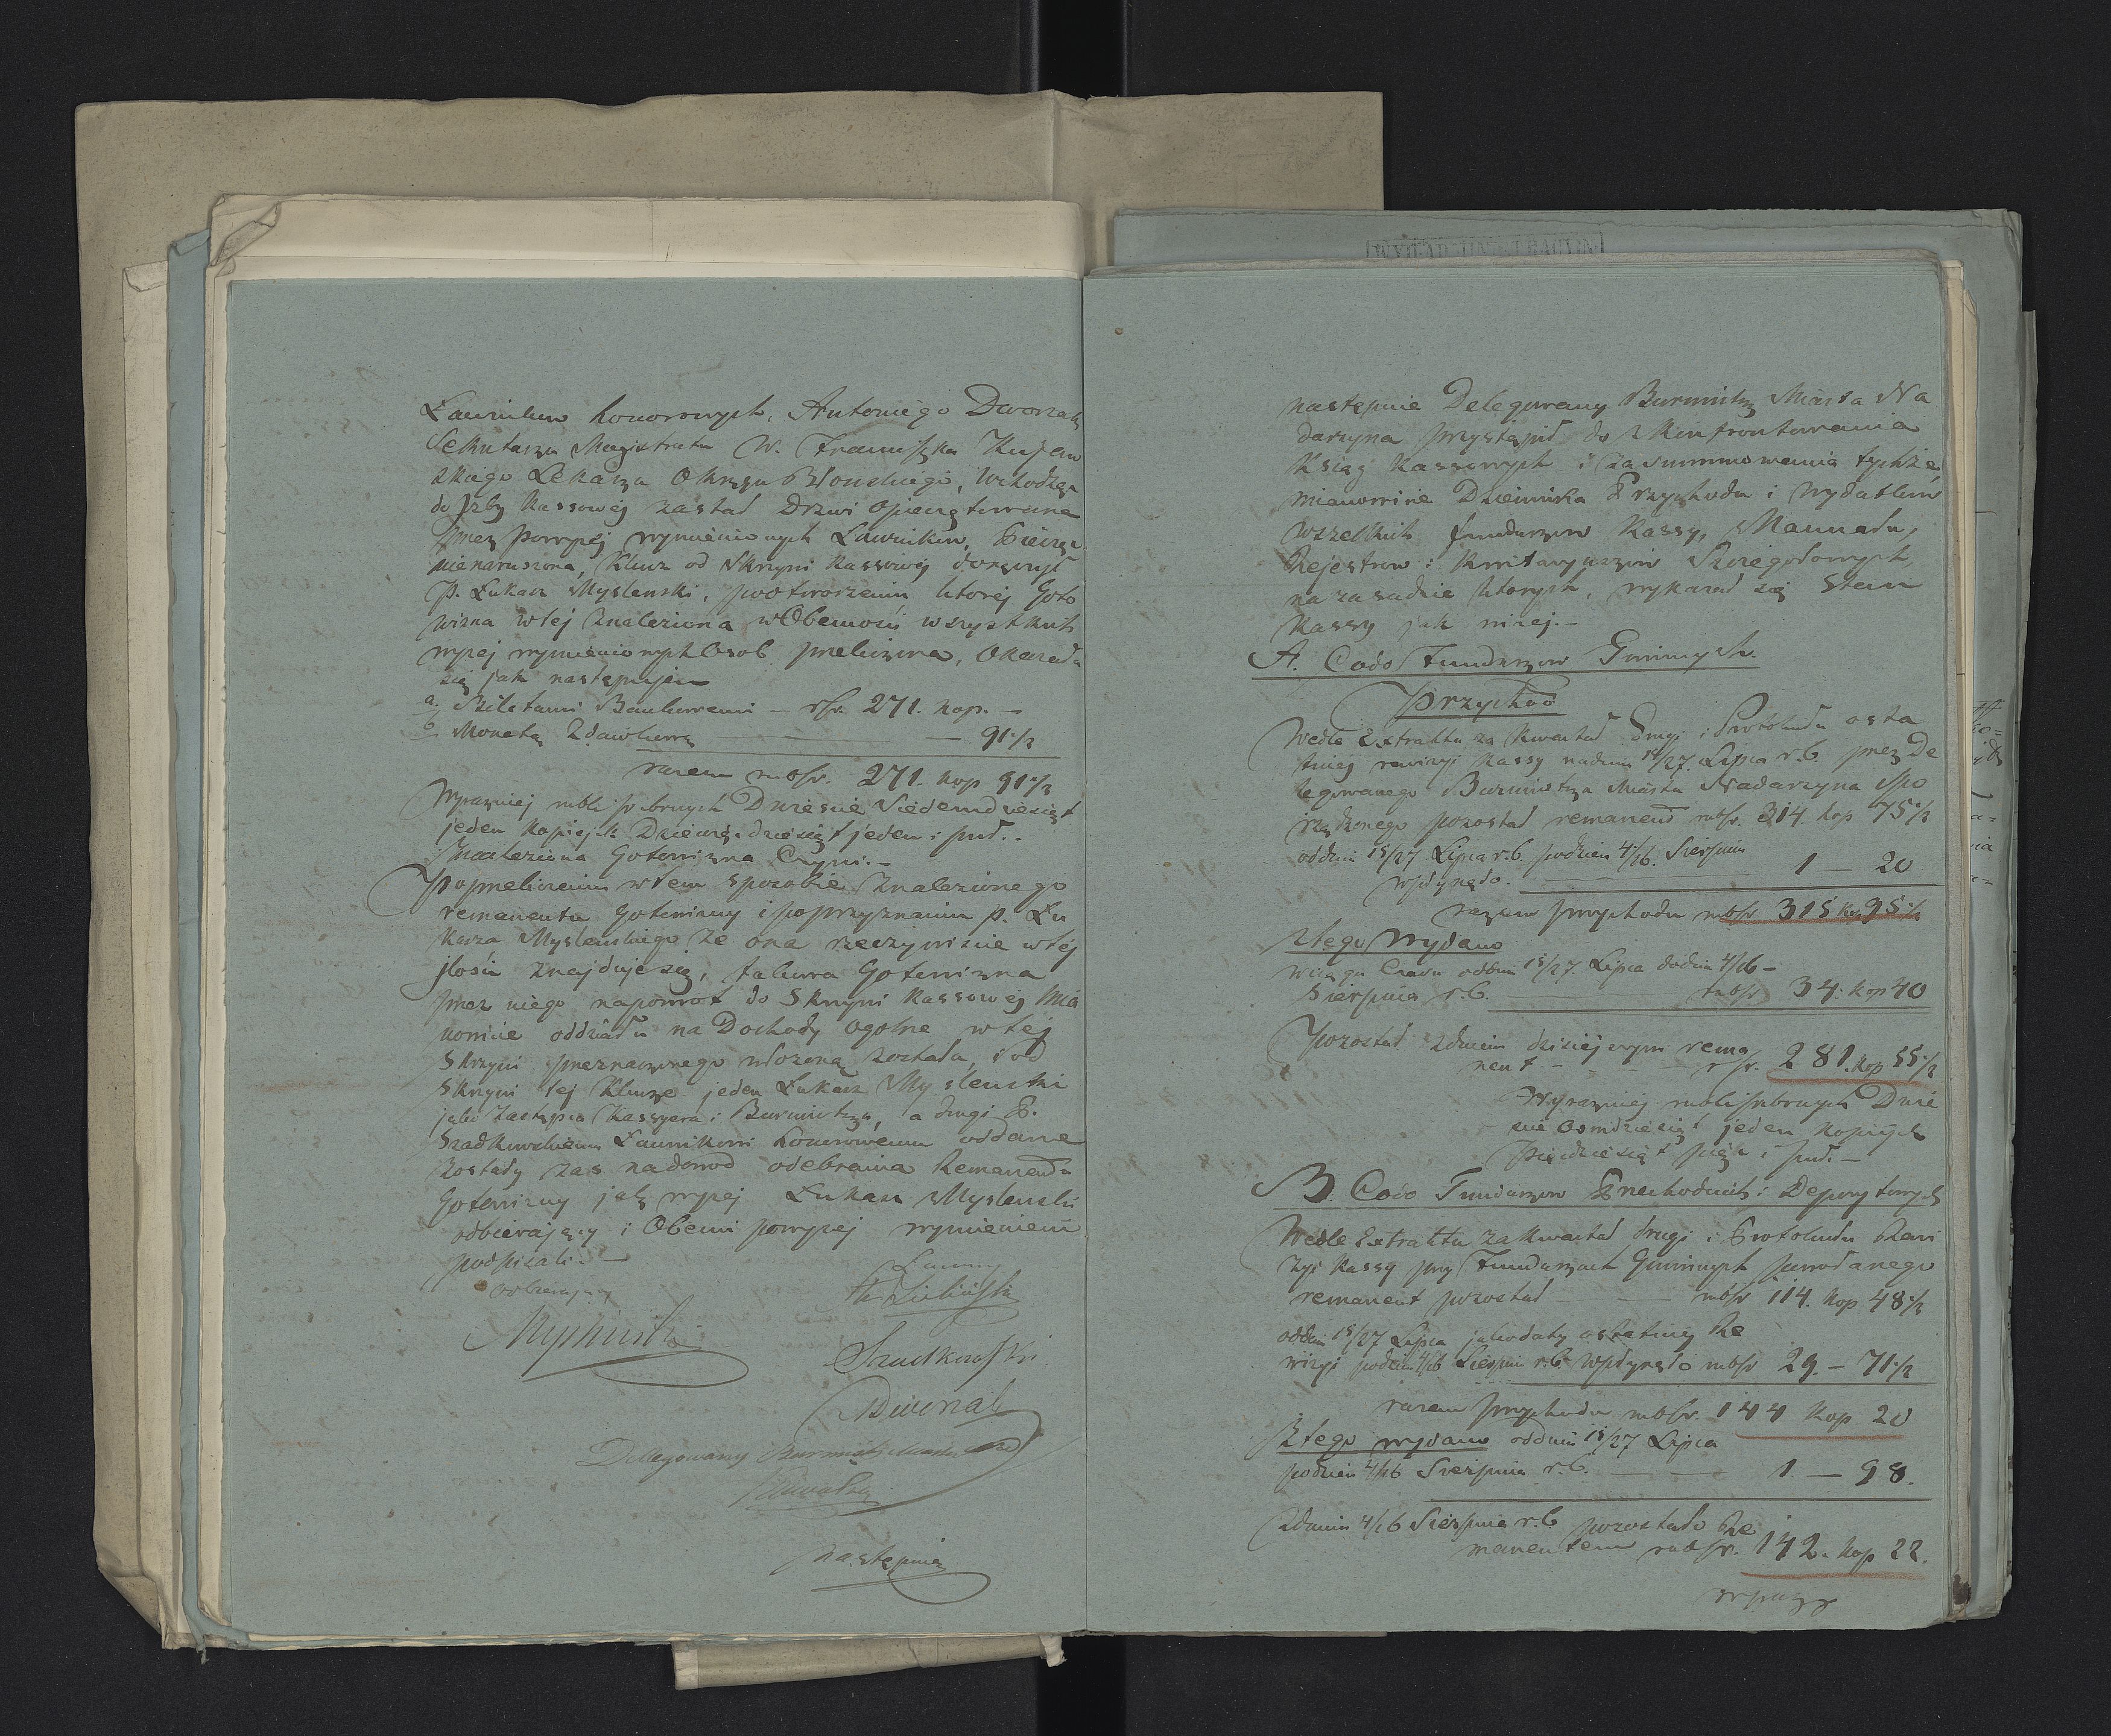 Ławników honorowych, Antoniego Dworzak
Sekretarza Magistratu W. Franciszka Kujaw
skiego Lekarza Okręgu Błonskiego, wchodząc
do Jzby Kassowéj zastał Drzwi opieczętowane
przez powyżéj wymienionych Ławników, Pieczęć
nienaruszona, Klucz od Skrzyni Kassowéj doręczył
P. Łukasz Myslenski, po otworzeniu ktoréj Goto
wizna w téj znaleziona w Obecności wszystkich
wyzej wymienionych Osob przeliczona, Okazała
się jak następuje
a. Biletami Bankowemi – rsr. 271. kop. –
b. Monetą Zdawkową — — 91½
razem rubsr. 271. kop 91½
Wyrazniej rubli srebrnych Dwiescie Siedemdziesiąt
jeden kopiejek Dziewięcdziesiąt jeden i puł. –
Znaleziona Gotowizna Czyni. –
Po przeliczeniu w tem sposobie znalezionego
remanentu Gotowizny i po przyznaniu p. Łu
kasza Myslenskiego ze ona rzeczywiscie w téj
jlości znajduje się, takowa Gotowizna
przez niego napowrot do Skrzyni Kassowéj mia
nowicie oddziału na Dochody ogolne w téj
Skrzyni przeznaczonego włozoną została, i od
Skrzyni téj Klucze jeden Łukasz Myslenski
jako Zastępca Kassyera i Burmistrza, a drugi P.
Szadkowskiemu Ławnikowi honorowemu oddane
Zostały zas na dowod odebrania Remanentu
Gotowizny jak wyzej Łukasz Myslenski
odbierający i Obecni powyzej wymienieni
podpisali. —
odbierający
Szadkowski
Dworzak
Delegowany Burmistrz Miasta
następnie
następnie Delegowany Burmistrz Miasta Na
darzyna przystąpił do skonfrontowania
Ksiąg Kassowych i zasummowania tychże,
mianowicie Dziennika Przychodu i Wydatków
wszelkich funduszow Kassy, Manuału,
Rejestrow i Kwitaryuszow Szczegołowych,
na zasadzie ktorych, wykazał się Stan
Kassy jak nizej. –
A. Co do Funduszow Gminnych.
Przychod
Wedle Extraktu za Kwartał Drugi i Protokułu osta
tniéj rewizyi Kassy na dniu 15/27. Lipca r.b. przez De
legowanego Burmistrza Miasta Nadarzyna spo
rządzonego pozostał remanent rubsr. 314. kop 75½
od dnia 15/27 Lipca r.b. po dzien 4/16. Sierpnia
wpłynęło. — 1 — 20
razem przychodu rubsr 315 ko. 95½
Z tego Wydano
w ciągu Czasu od dnia 15/27. Lipca do dnia 4/16 –
Sierpnia r.b. — rubsr 34. kop 40
Pozostał z dniem dzisiejszym rema
nent – – – rsr. 281. kop 55½
Wyrazniej rubli srebrnych Dwie
scie Osmdziesiąt jeden kopiejek
Piędziesiąt pięć i puł. —
B. Co do Funduszow Przechodnich i Depozytowych
Wedle Extraktu za Kwartał drugi i Protokułu Rewi
zyi Kassy przy Funduszach Gminnych powołanego
remanent pozostał — rubsr 114. kop 48½
od dnia 15/27 Lipca jako daty ostatniej Re
wizyi po dzien 4/16 Sierpnia r.b. wpłynęło rubsr 29. – 71½
razem przychodu rubsr. 144 kop 20
Z tego wydano od dnia 15/27 Lipca
po dzien 4/16 Sierpnia r.b. — 1. — 98.
Z dniem 4/16 Sierpnia r.b. pozostało Re
manentem rubsr. 142. kop 22.